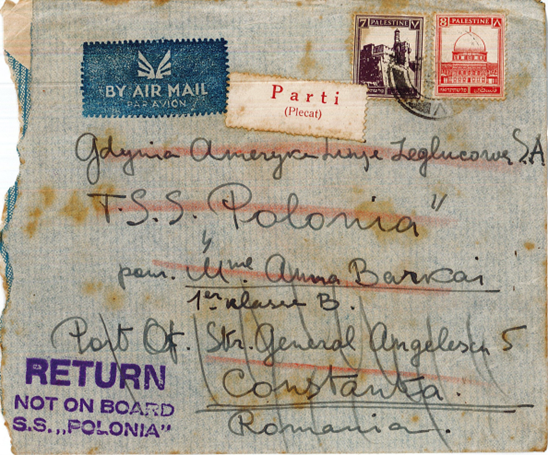 BY AIR MAIL
PAR AVION
Parti
(Plecat)
7 PALESTINE ٧
8 PALESTINE ٨
Gdynia Ameryka Linje Żeglucowe S.A
T.S.S. Polonia"
pour. Mme. Anna Barkai
1er klasse B.
Port Of. Str. General Angelescu 5
Constantza.
Romania.
RETURN
NOT ON BOARD
S.S. „POLONIA"